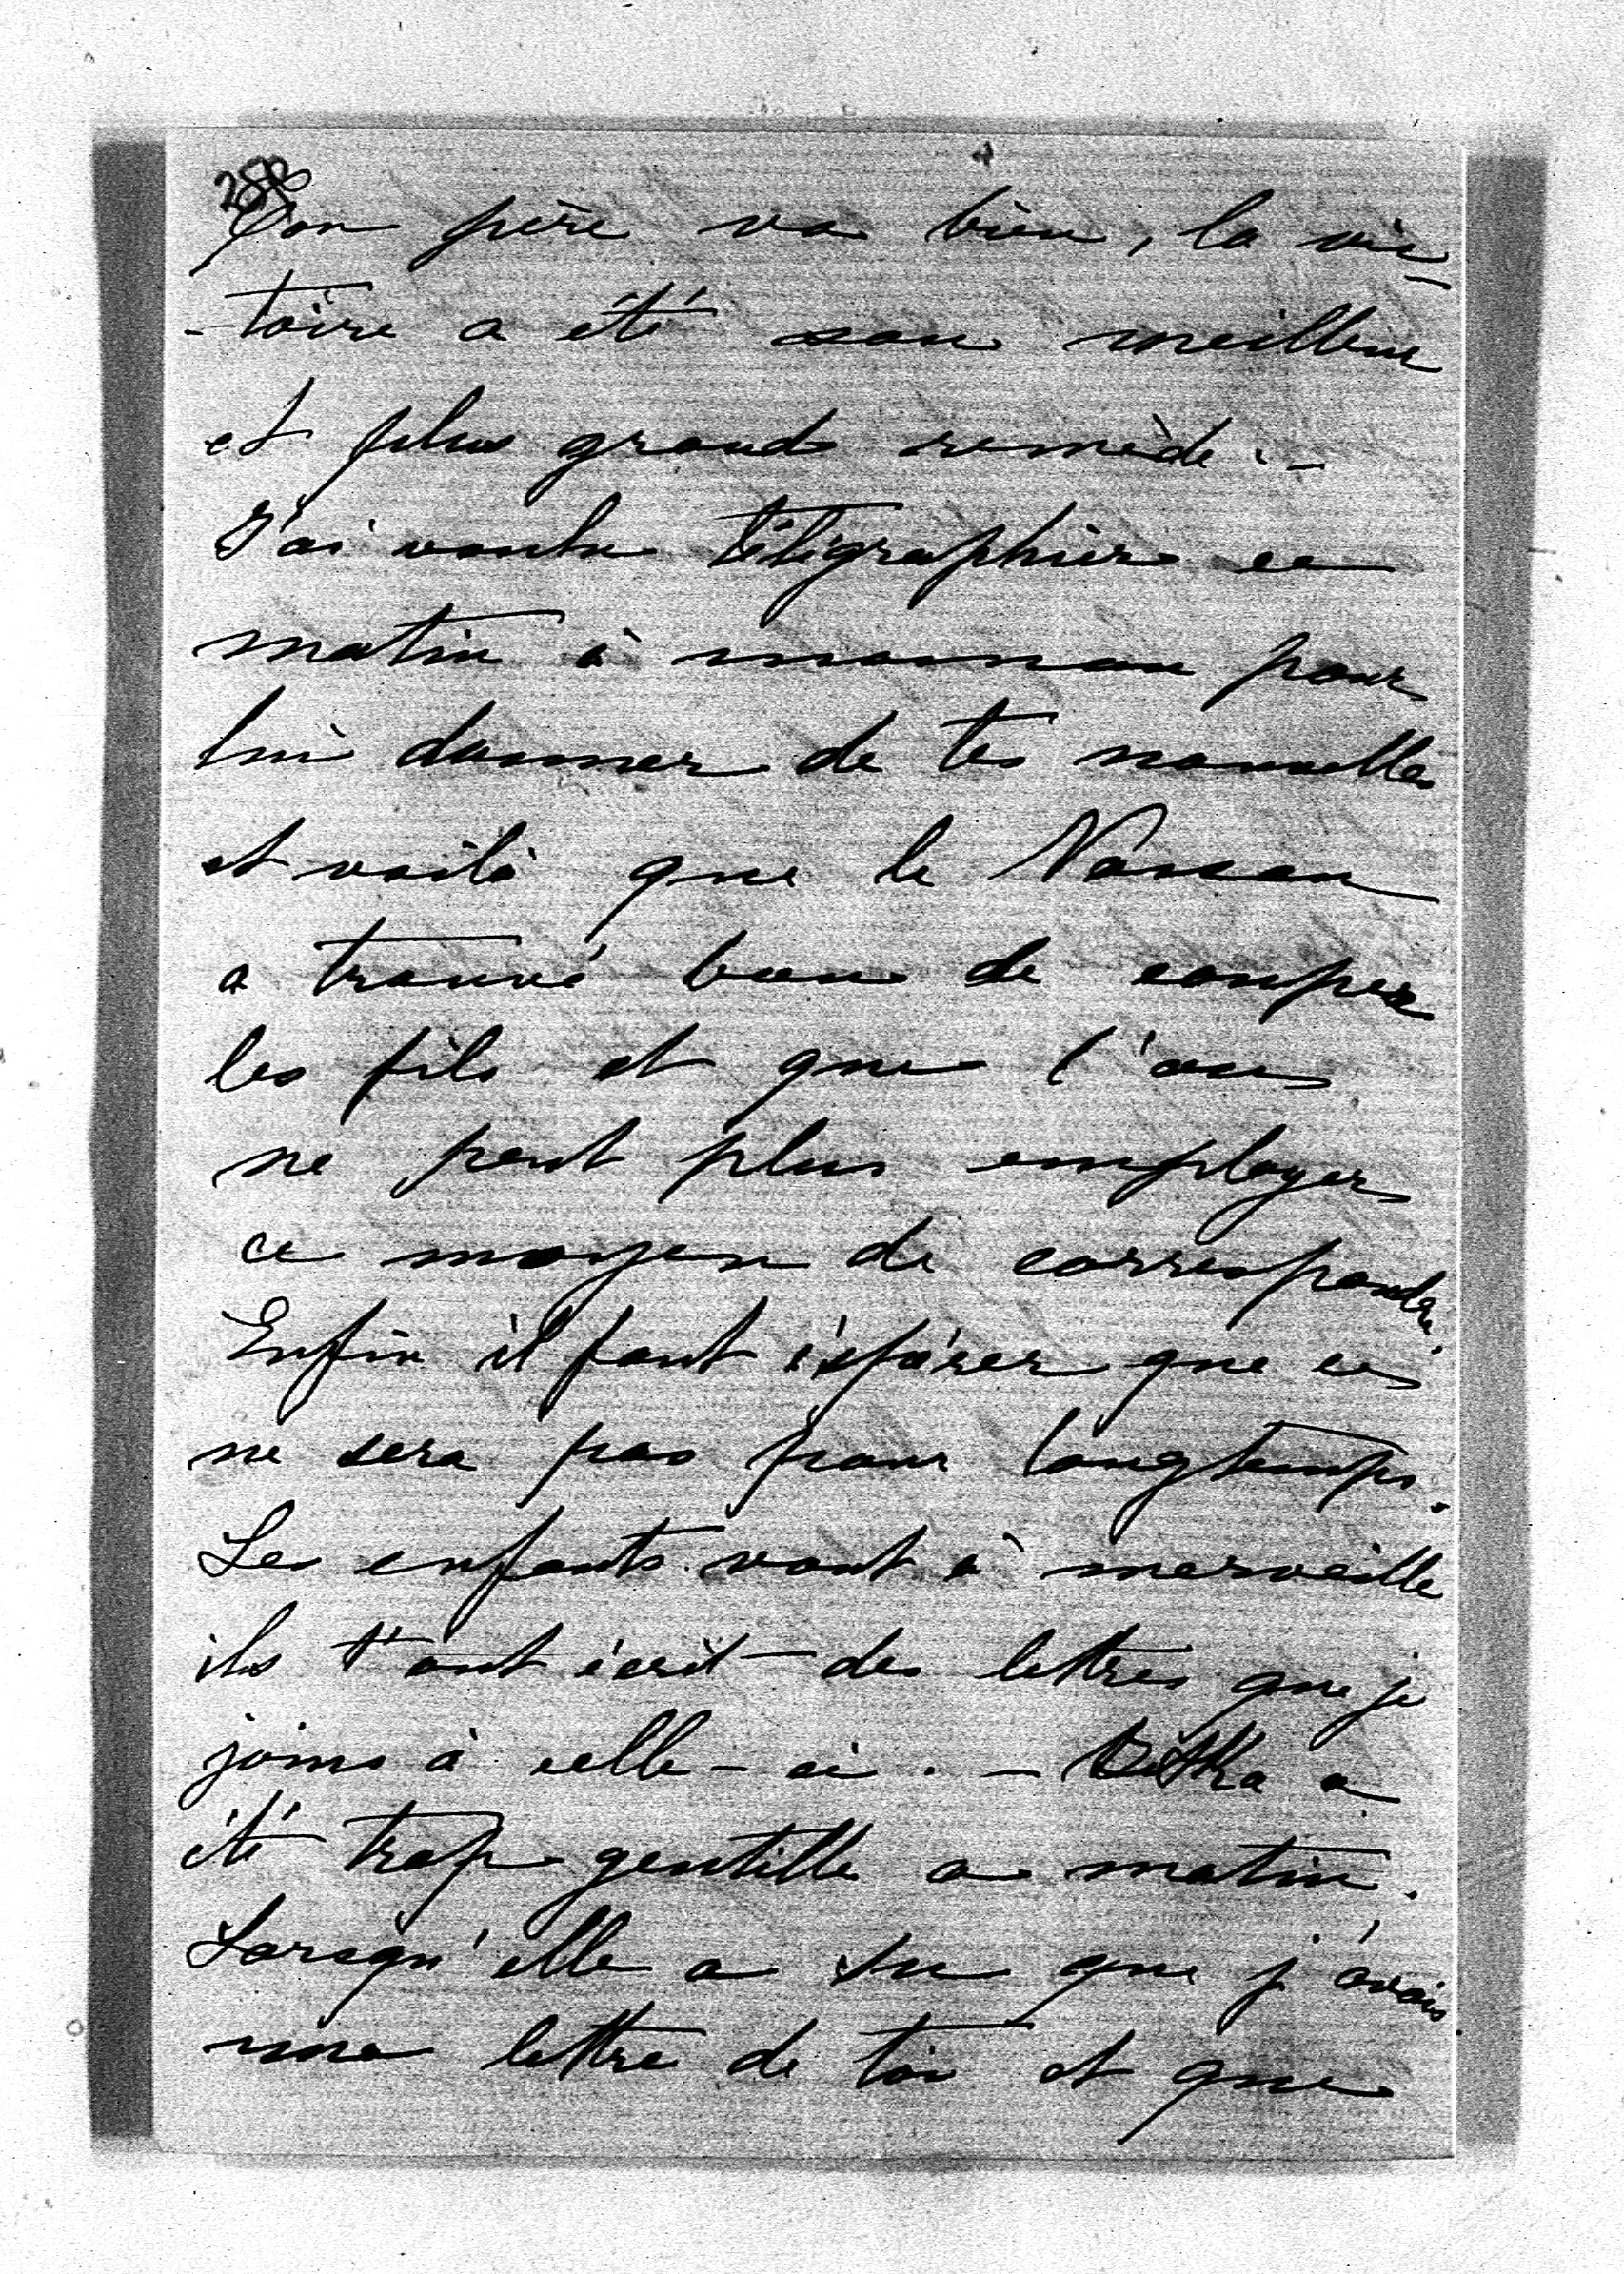 Ton père va bien, la vic-
-toire a été son meilleur
et plus grand remède. -
J'ai voulu télégraphier ce
matin à maman pour
lui donner de tes nouvelles
et voilà que le Nassau
a trouvé bon de couper
les fils et que l'on
ne peut plus employer
ce moyen de correspondre.
Enfin il faut éspérer que ce
ne sera pas pour longtemps.
Les enfants vont à merveille
ils t'ont écrit des lettres que je
joins à celle-ci. - a
été trop gentille ce matin.
Lorsqu'elle a su que j'avais
une lettre de toi et que